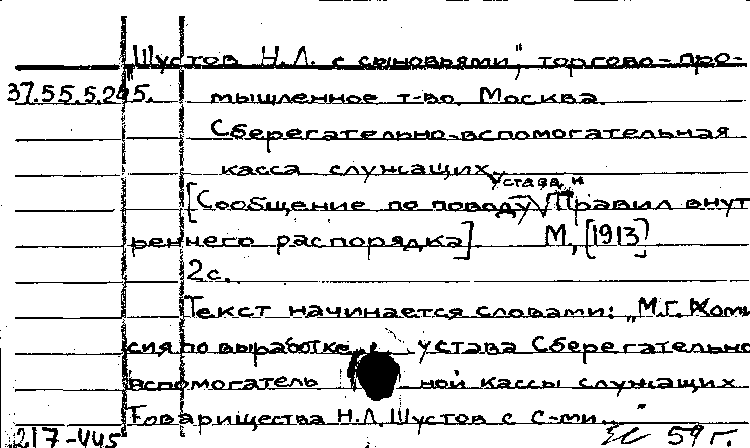 "Шустов Н.Л. с сыновьями", торгово-про-
37.55.5.245. мышленное т-во. Москва.
Сберегательно-вспомогательная
касса служащих
устава и
[Сообщение по поводу √ Правил внут
реннего распорядка] М., [1913]
2с.
Текст начинается словами: "М.Г. Коми
сия по выработке устава Сберегательно
вспомогатель ной кассы служащих
Товарищества Н.Л. Шустов с С-ми..."
217-445 59 г.